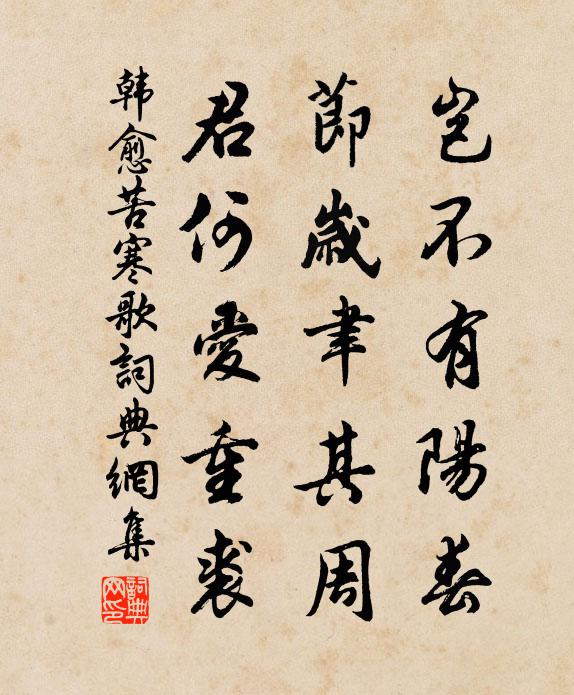 岂不有陽春
節歲聿其周
君何愛重裘
韓愈苦寒歌詞典網集
詞典網印